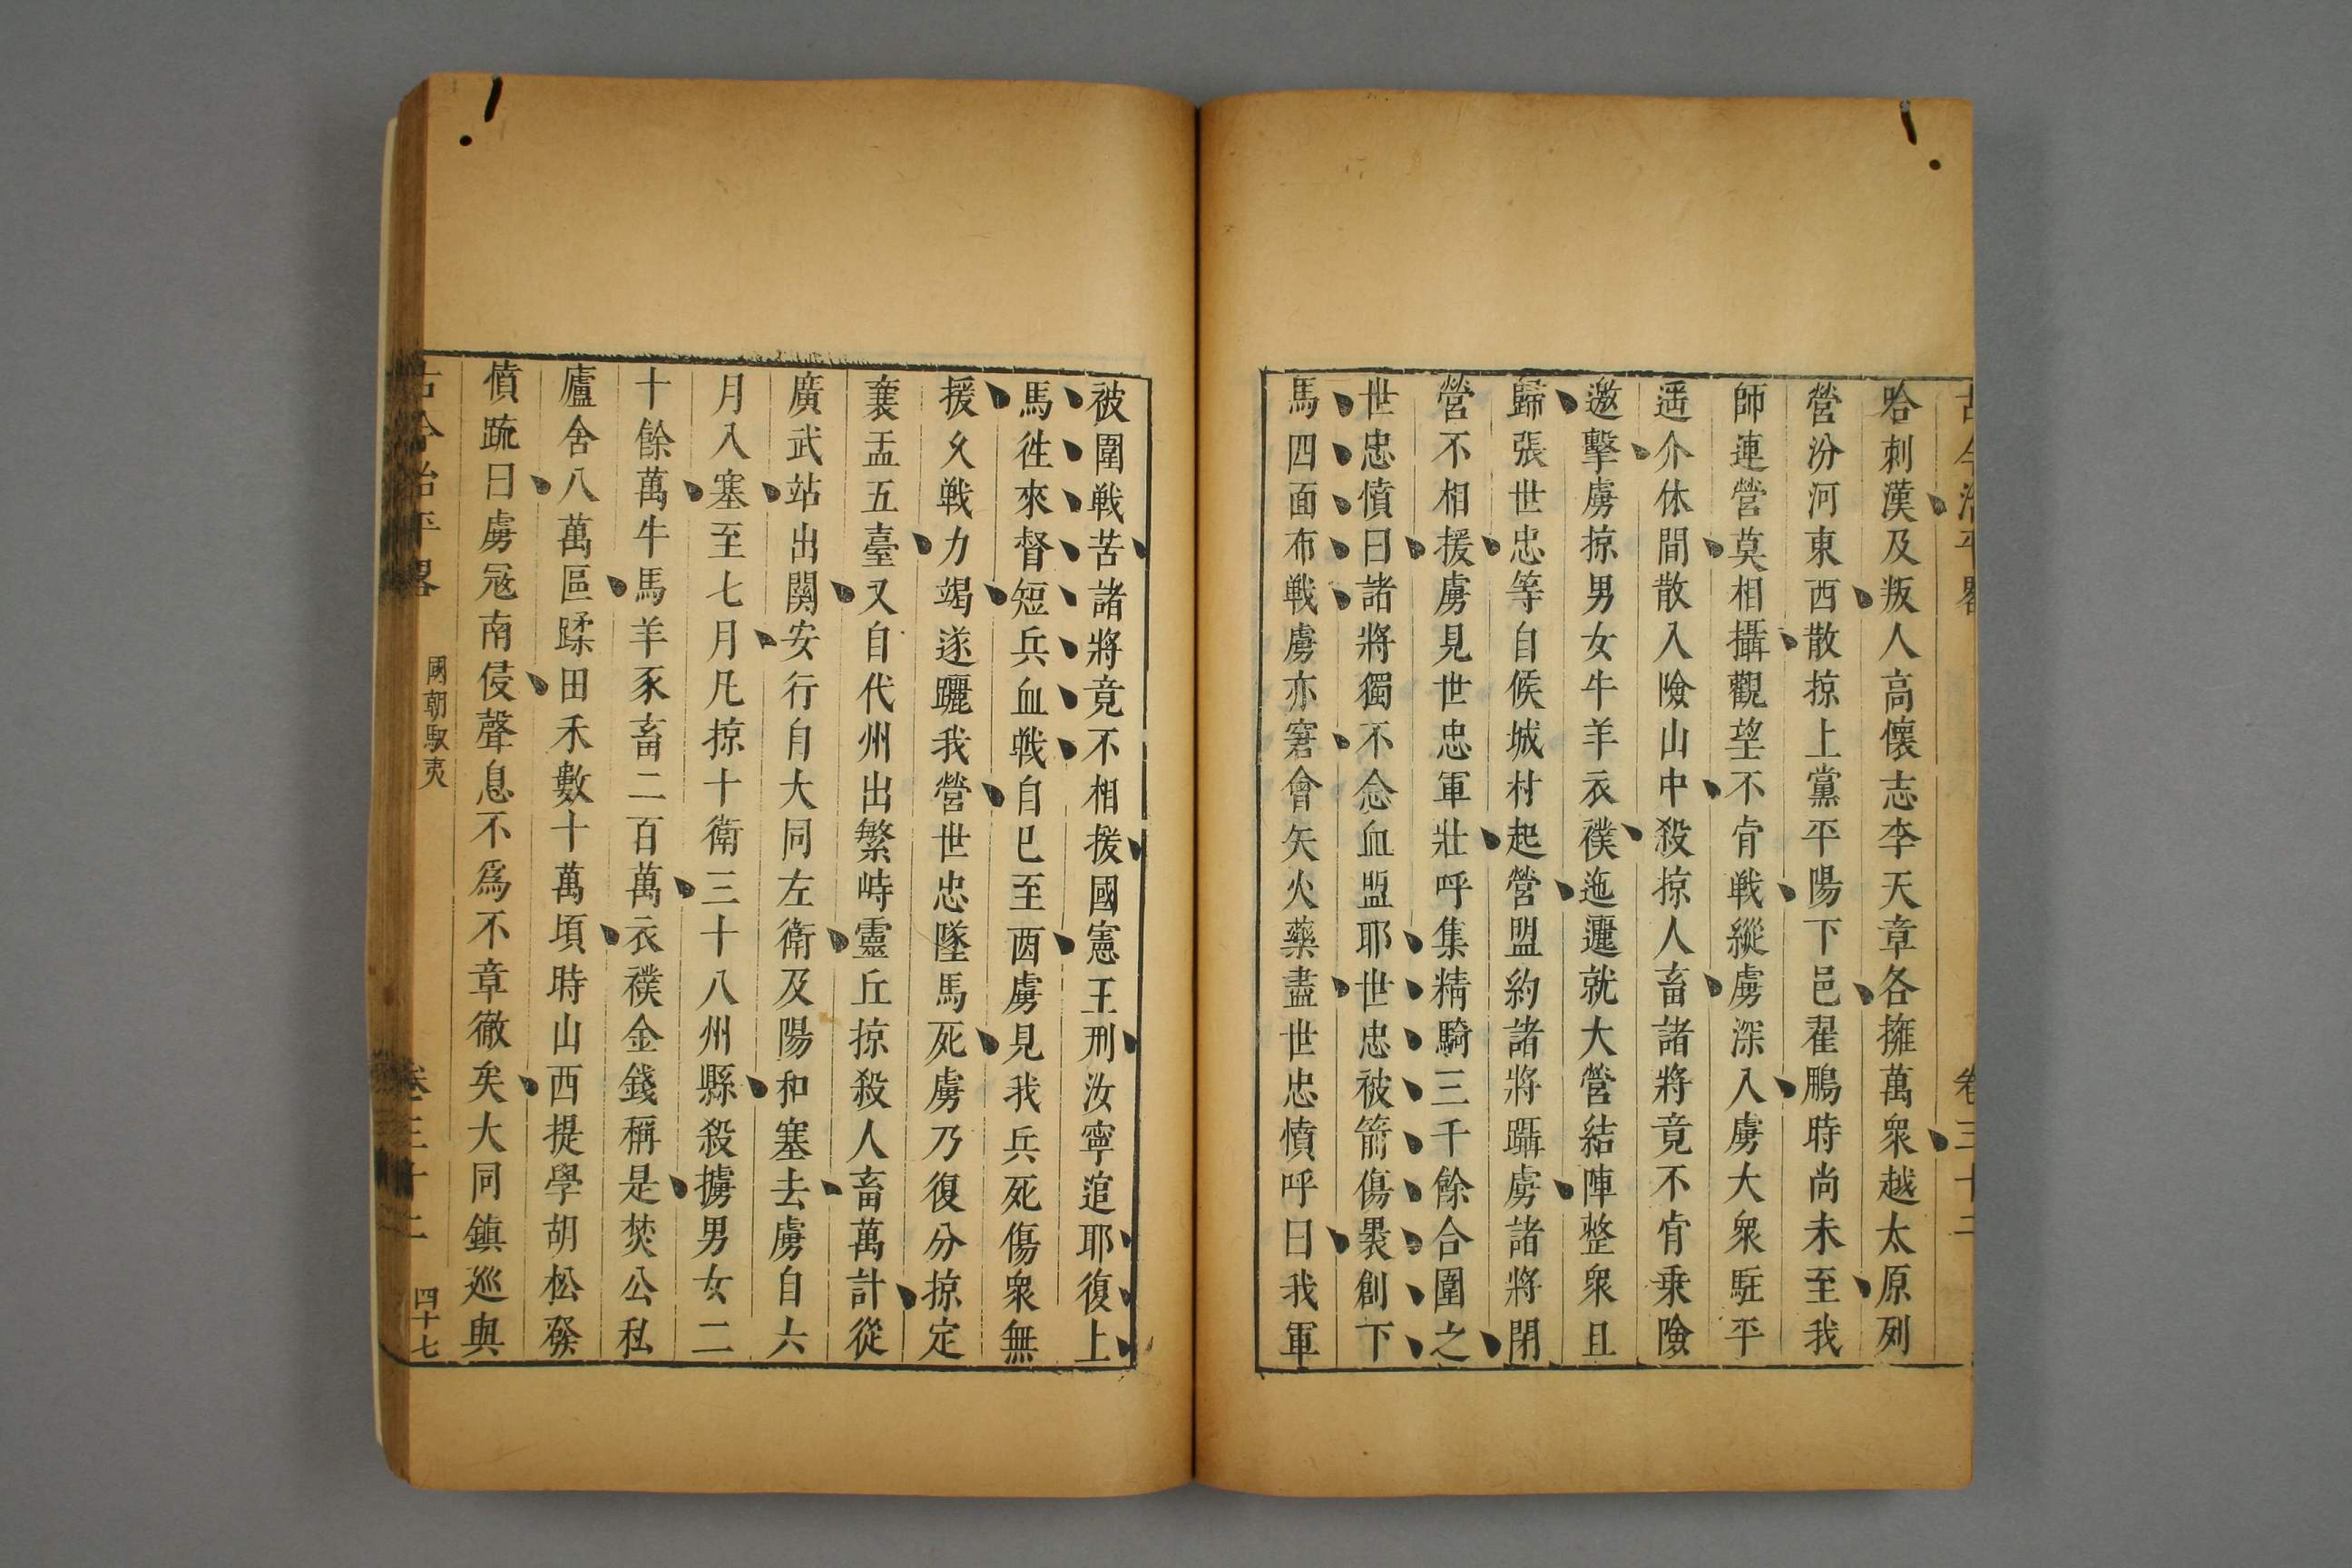 古今治平畧 卷三十二
哈刺漢及叛人高懷志李天章各擁萬衆越太原列
營汾河東西散掠上黨平陽下邑翟鵬時尚未至我
師連營莫相攝觀望不肯戰縱虜深入虜大衆駐平
遥介休間散入險山中殺掠人畜諸將竟不肯乗險
邀擊虜掠男女牛羊衣襆迤邐就大營結陣整衆且
歸張世忠等自候城村起營盟約諸將躡虜諸將閉
營不相援虜見世忠軍壯呼集精騎三千餘合圍之
世忠憤曰諸將獨不念血盟耶世忠被箭傷裹創下
馬四面布戰虜亦窘會矢火藥盡世忠憤呼曰我軍
被圍戰苦諸將竟不相援國憲王刑汝寧逭耶復上
馬徃來督短兵血戰自巳至酉虜見我兵死傷衆無
援乆戰力竭遂躪我營世忠墜馬死虜乃復分掠定
襄盂五臺又自代州出繁峙靈丘掠殺人畜萬計從
廣武站出關安行自大同左衛及陽和塞去虜自六
月入塞至七月凡掠十衛三十八州縣殺擄男女二
十餘萬牛馬羊豕畜二百萬衣襆金錢稱是焚公私
廬舍八萬區蹂田禾數十萬頃時山西提學胡松發
憤疏曰虜冦南侵聲息不爲不章徹矣大同鎮巡與
古今治平畧 國朝馭夷 卷三十二 四十七